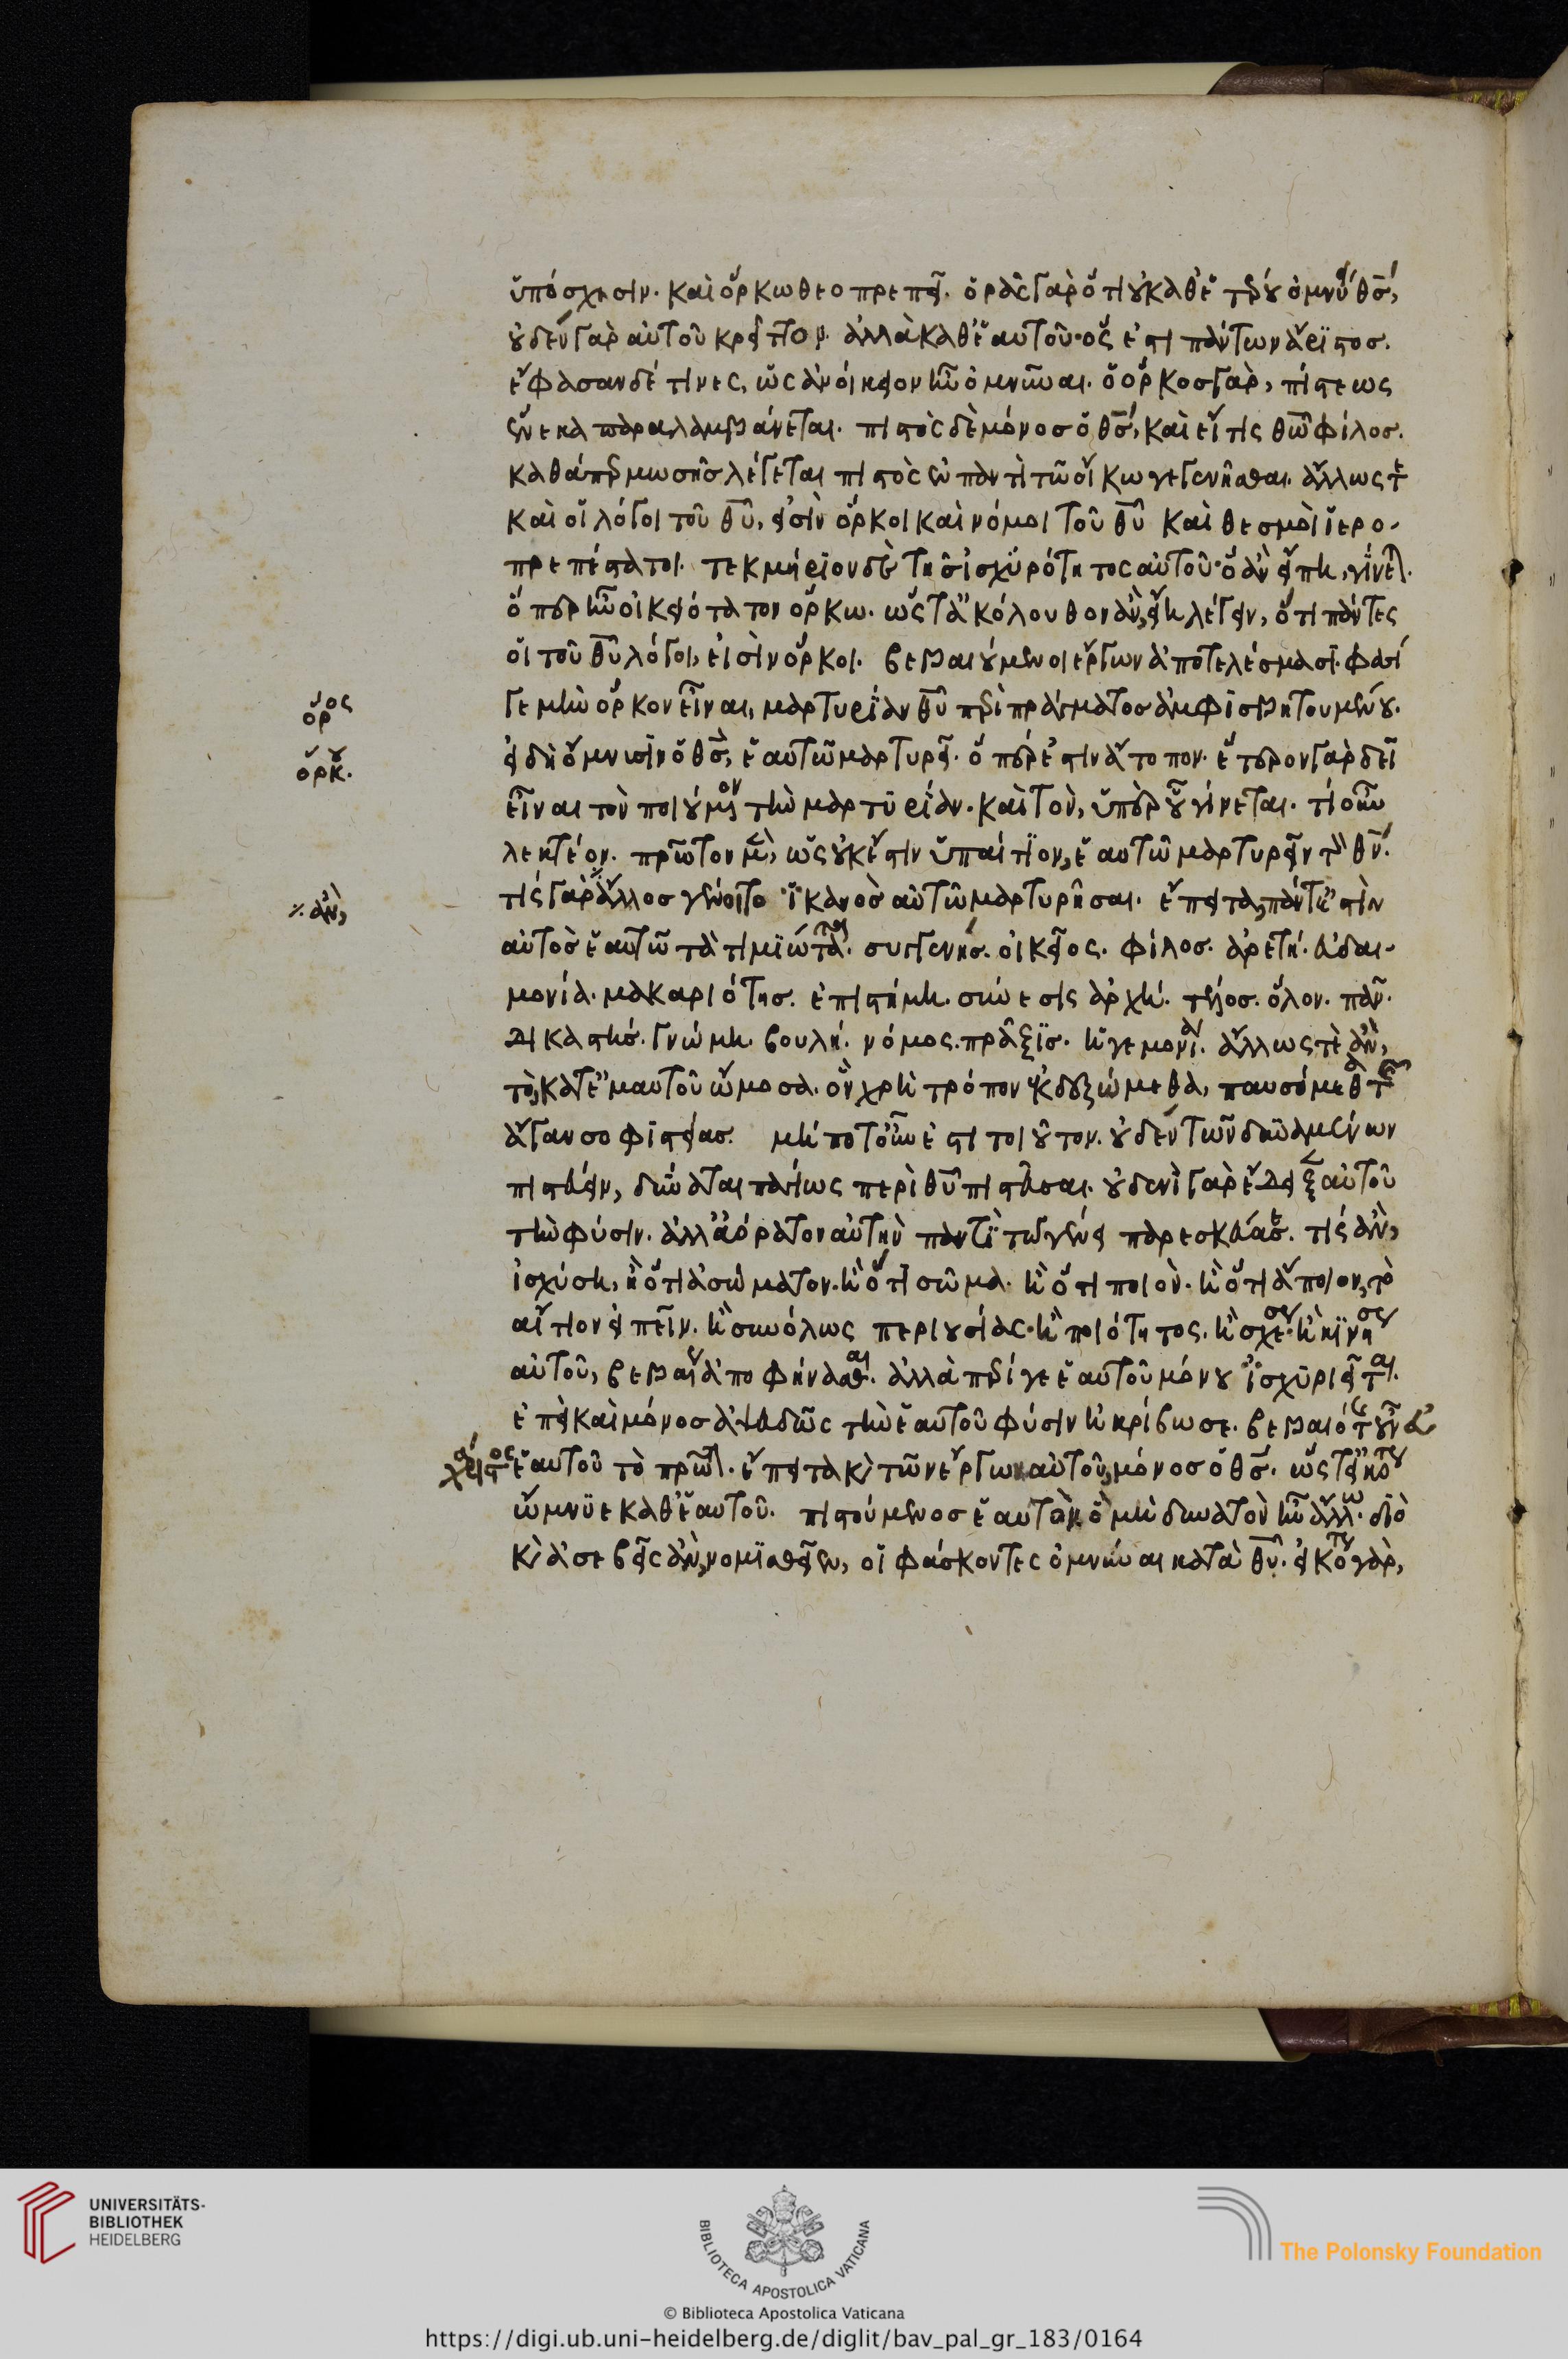 ὑπόσχησιν. καὶ ὅρκω θεοπρεπεῖ. ὁρᾶς γὰρ ὅτι οὐ καθ' ἑτέρου ὀμνύει θς̄,
οὐδὲν γὰρ αὐτοῦ κρεῖττον. ἀλλὰ καθ' ἑαυτοῦ· ὅς ἐστι πάντων ἄριστος.
ἔφασαν δέ τινες, ὡς ἀνοίκειον ἦν ὀμνῦναι. ὁ ὅρκος γὰρ, πίστεως
ἕνεκα παραλαμβάνεται. πιστὸς δὲ μόνος ὁ θς̄, καὶ εἴ τις θῶ̄ φίλος.
καθάπερ μωσῆς λέγεται πιστὸς ἐν παντὶ τῶ οἴκω γεγενῆσθαι. ἄλλως τε
καὶ οἱ λόγοι τοῦ θῡ, εἰσὶν ὅρκοι καὶ νόμοι τοῦ θῡ καὶ θεσμοὶ ἱερο-
πρεπέστατοι. τεκμήριον δὲ τῆς ἰσχυρότητος αὐτοῦ· ὃ ἂν εἴπη, γίνεται.
ὅπερ ἦν οἰκειότατον ὅρκω. ὥστ' ἀκόλουθον ἂν, εἴη λέγειν, ὅτι πάντες
οἱ τοῦ θῡ λόγοι, εἰσὶν ὅρκοι. βεβαιούμενοι ἔργων ἀποτελέσμασι. φασί
γε μὴν ὅρκον εἶναι, μαρτυρίαν θῡ περὶ πράγματος ἀμφισβητουμένου.
εἰ δὴ ὄμνυσιν ὁ θς̄, ἑαυτῶ μαρτυρεῖ. ὅπερ ἐστὶν ἄτοπον. ἕτερον γὰρ δεῖ
εἶναι τὸν ποιούμενον τὴν μαρτυρίαν. καὶ τὸν, ὑπὲρ οὗ γίνεται. τί οὖν
λεκτέον. πρῶτον μὲν, ὡς οὐκ ἔστιν ὑπαίτιον, ἑαυτῶ μαρτυρεῖν τὸν θν̄.
τίς γὰρ ἄλλος γένοιτο ἱκανὸς αὐτῶ μαρτυρῆσαι. ἔπειτα, πάντ' ἐστὶν
αὐτὸς ἑαυτῶ τὰ τιμιώτατα. συγγενής. οἰκεῖος. φίλος. ἀρετή. εὐδαι-
μονία. μακαριότης. ἐπιστήμη. σύνεσις ἀρχή. τέλος. ὅλον. πᾶν.
δικαστής. γνώμη. βουλή. νόμος. πρᾶξις. ἡγεμονία. ἄλλως τὲ ἂν,
τὸ, κατ' ἐμαυτοῦ ὤμοσα. ὃν χρὴ τρόπον ἐκδεξώμεθα, παυσόμεθα τῆς
ἄγαν σοφιστείας. μήποτ' οὖν ἐστι τοιοῦτον. οὐδὲν τῶν δυναμένων
πιστεύειν, δύναται παγίως περὶ θῡ πιστεῦσαι. οὐδενὶ γὰρ ἔδειξεν αὐτοῦ
τὴν φύσιν. ἀλλ' ἀόρατον αὐτὴν παντὶ τῶ γένει παρεσκεύασε. τίς ἂν,
ἰσχύση, ἢ ὅτι ἀσώματον. ἢ ὅτι σῶμα. ἢ ὅτι ποιὸν. ἢ ὅτι ἄποιον, τὸ
αἴτιον εἰπεῖν. ἢ συνόλως περὶ οὐσίας. ἢ ποιότητος. ἢ σχέσεως. ἢ κινήσεως
αὐτοῦ, βεβαίως ἀποφήνασθαι. ἀλλὰ περί γε ἑαυτοῦ μόνου ἰσχυριεῖται.
ἐπεὶ καὶ μόνος ἀψευδῶς τὴν ἑαυτοῦ φύσιν ἠκρίβωσε. βεβαιότατος οὖν
ἑαυτοῦ τὸ πρῶτον. ἔπειτα καὶ τῶν ἔργων αὐτοῦ, μόνος ὁ θς̄. ὥστ' εἰκότως
ὤμνυε καθ' ἑαυτοῦ. πιστούμενος ἑαυτὸν. ὃ μὴ δυνατὸν ἦν ἄλλω. διὸ
καὶ ἀσεβεῖς ἂν, νομισθεῖεν, οἱ φάσκοντες ὀμνύναι κατὰ θῡ. εἰκότως γὰρ,
ὅρος
ὅρκου.
ἂν,
UNIVERSITÄTS-
BIBLIOTHEK
HEIDELBERG
BIBLIOTECA APOSTOLICA VATICANA
The Polonsky Foundation
© Biblioteca Apostolica Vaticana
https://digi.ub.uni-heidelberg.de/diglit/bav_pal_gr_183/0164